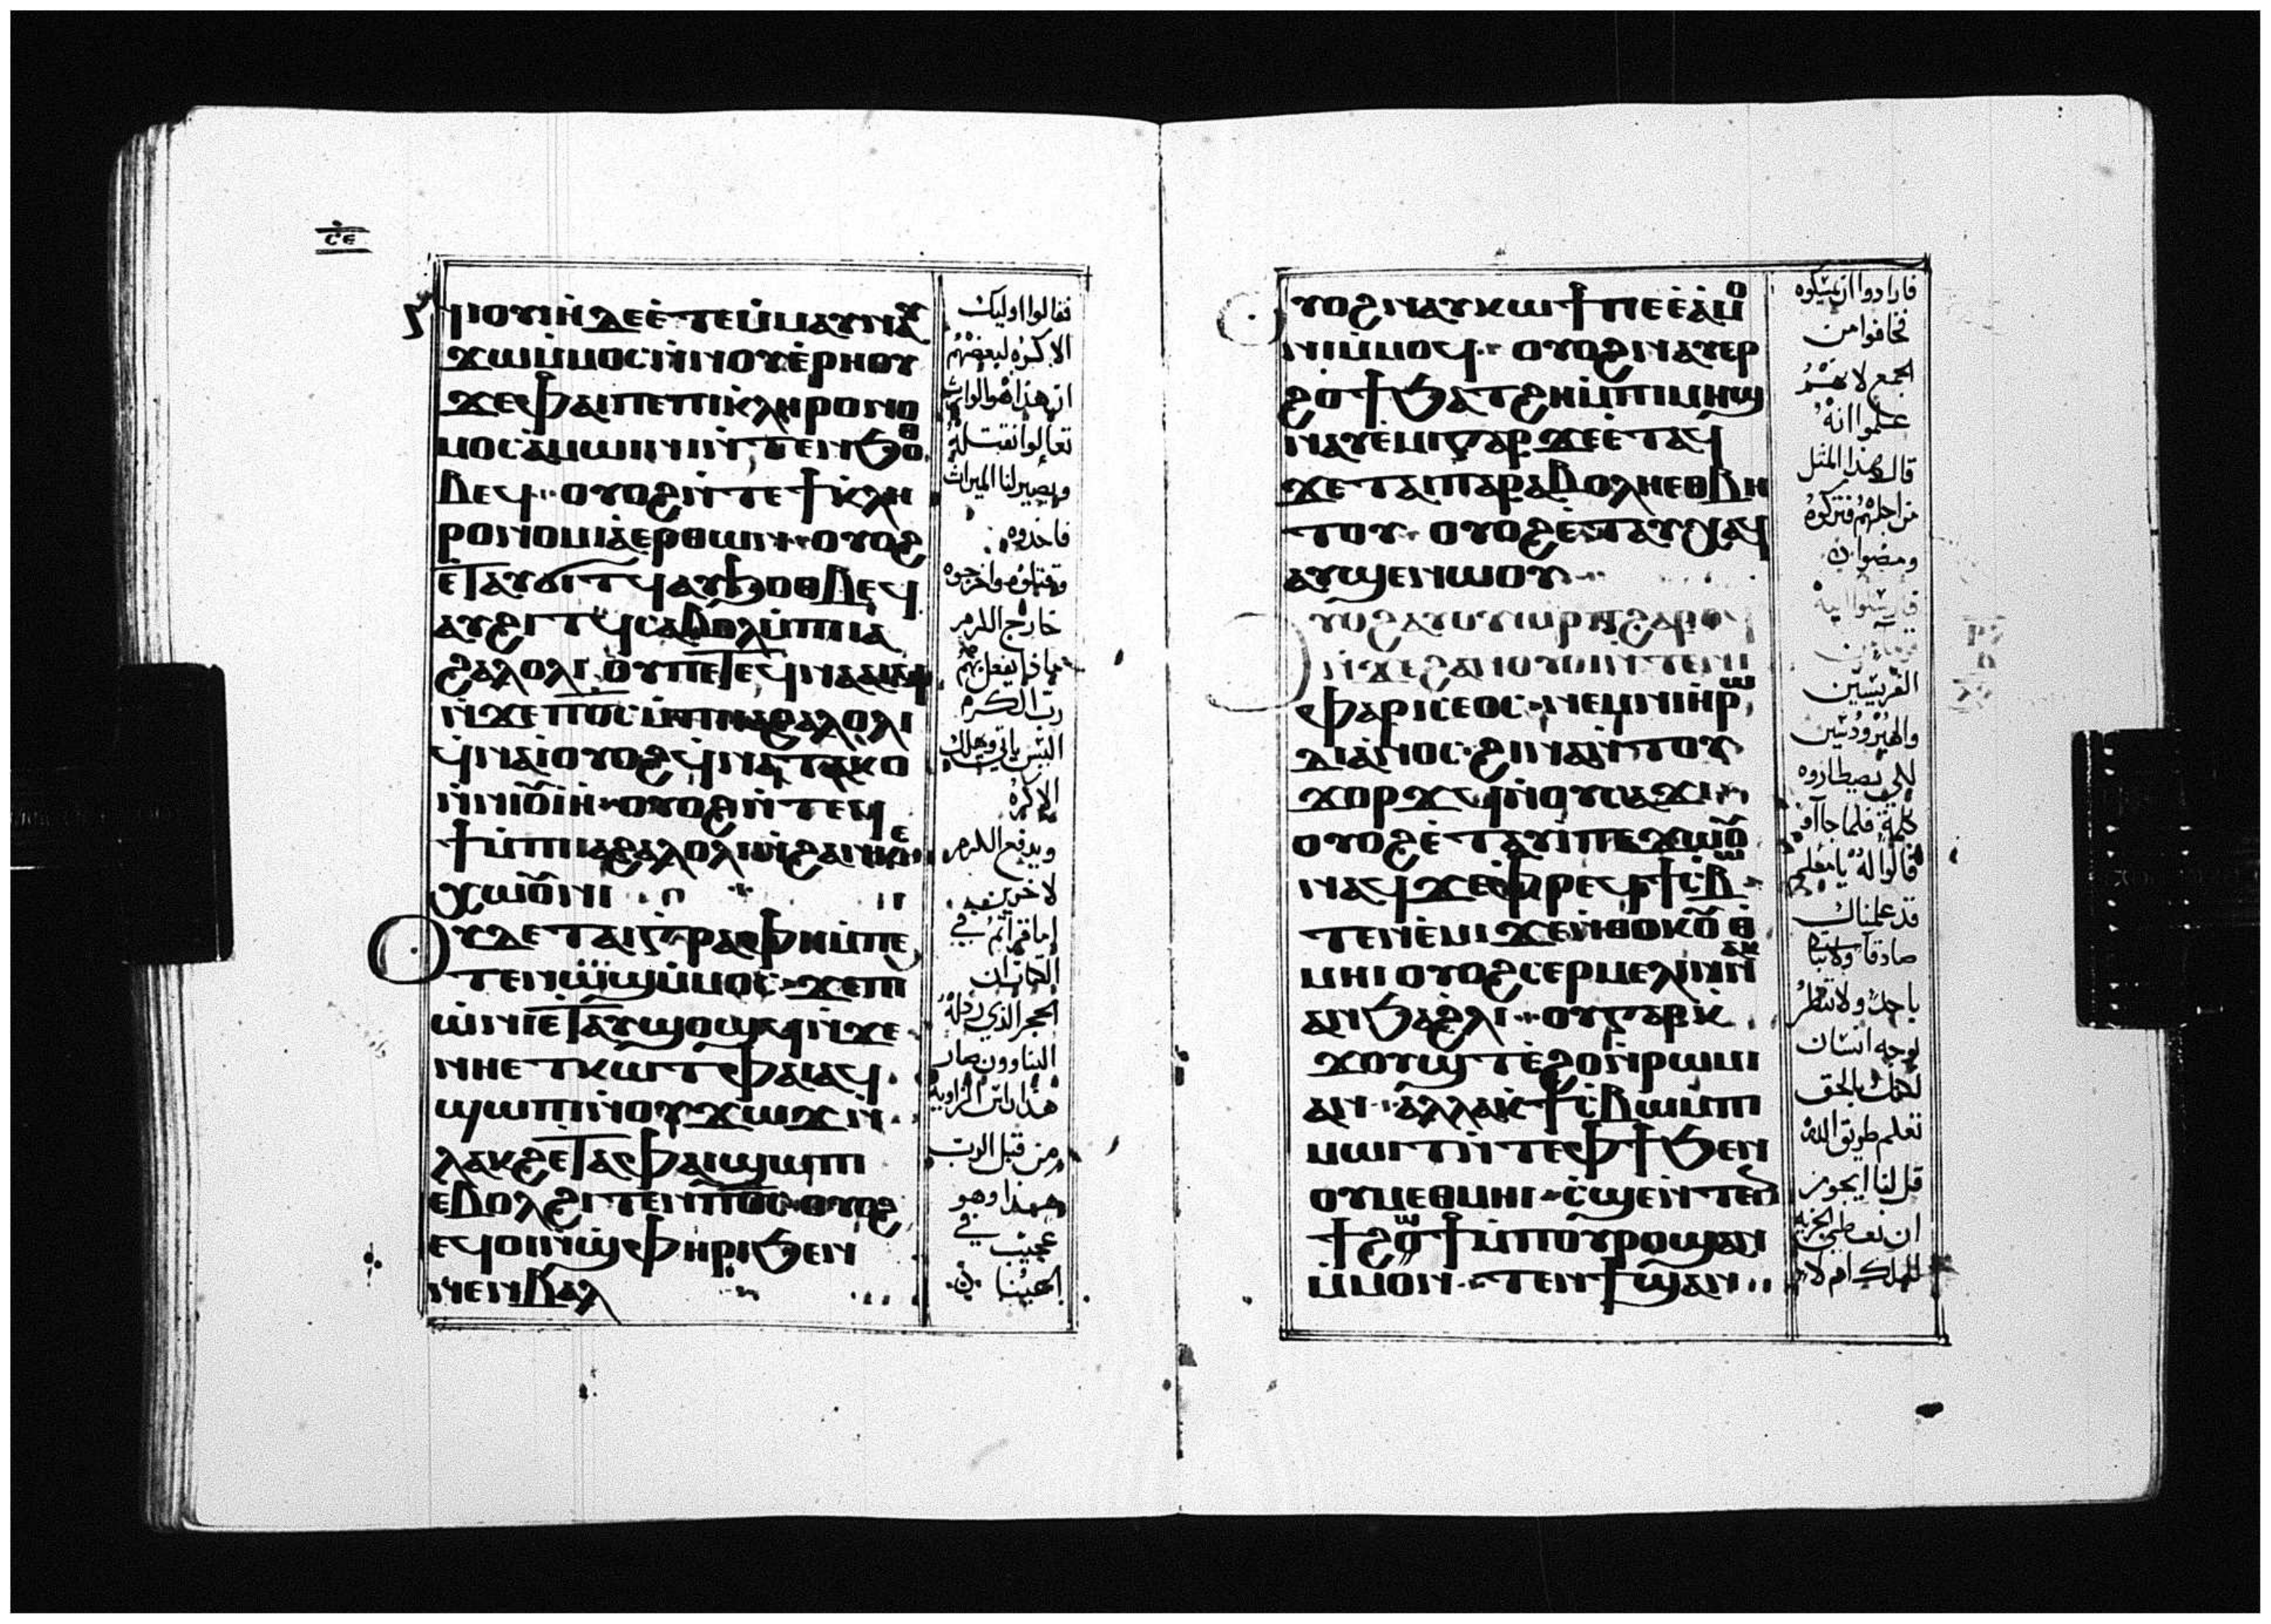 ⲥⲉ
ⲛⲓⲟⲩⲓⲏ ⲇⲉ ⲉⲧⲉⲙⲙⲁⲩ ⲛⲁⲩ
ϫⲱⲙⲙⲟⲥ ⲛⲛⲟⲩⲉⲣⲏⲟⲩ
ϫⲉ ⲫⲁⲓ ⲡⲉ ⲡⲓⲕⲗⲏⲣⲟⲛⲟ
ⲙⲟⲥ ⲁⲙⲱⲓⲛⲓ ⲛⲧⲉⲛϧⲟⲑ
ⲃⲉϥ ⲟⲩⲟϩ ⲛⲧⲉ ϯⲕⲗⲏ
ⲣⲟⲛⲟⲙⲓⲁ ⲉⲣ ⲑⲱⲛ ⲟⲩⲟϩ
ⲉⲧⲁⲩϭⲓⲧϥ ⲁⲩϧⲟⲑⲃⲉϥ
ⲁⲩϩⲓⲧϥ ⲥⲁⲃⲟⲗ ⲙⲡⲓⲓⲁ
ϩⲁⲗⲟⲗⲓ ⲟⲩ ⲡⲉⲧⲉϥⲛⲁⲁⲓϥ
ⲛϫⲉ ⲡⲟⲥ ⲙⲡⲓⲓⲁϩⲁⲗⲟⲗⲓ
ϥⲛⲁⲓ ⲟⲩⲟϩ ϥⲛⲁⲧⲁⲕⲟ
ⲛⲛⲓⲟⲩⲓⲏ ⲟⲩⲟϩ ⲛⲧⲉϥ
ϯ ⲙⲡⲓⲓⲁϩⲁⲗⲟⲗⲓ ⲛϩⲁⲛⲕⲉ
ⲭⲱⲟⲩⲛⲓ
ⲟⲩⲇⲉ ⲧⲁⲓⲅⲣⲁⲫⲏ ⲙⲡⲉ
ⲧⲉⲛⲱϣ ⲙⲙⲟⲥ ϫⲉ ⲡⲓ
ⲱⲛⲓ ⲉⲧⲁⲩϣⲟϣϥ ⲛϫⲉ
ⲛⲏⲉⲧⲕⲱⲧ ⲫⲁⲓ ⲁϥ
ϣⲱⲡⲓ ⲛⲟⲩϫⲱϫ ⲛ
ⲗⲁⲕϩ ⲉⲧⲁ ⲫⲁⲓ ϣⲱⲡⲓ
ⲉⲃⲟⲗϩⲓⲧⲉⲛ ⲡⲟⲥ ⲟⲩⲟϩ
ϥⲟⲓ ⲛϣⲫⲏⲣⲓ ϧⲉⲛ
ⲛⲉⲛⲃⲁⲗ
فقالوا اوليك
الاكره لبعضهم
ان هذا هو الوارث
تعالوا نقتله
ويصير لنا الميراث
فاخدوه
وقتلوه واخرجوه
خارج الكرم
ماذا يفعل بهم
رب الكرم
اليس ياتي ويهلك
الاكره
ويدفع الكرم
لاخرين
اما قراتم في
الكتاب ان
الحجر الذي رذله
البناوون صار
هذا راس الزاويه
من قبل الرب
هذا وهو
عجيب في
اعيننا
ⲟⲩⲟϩ ⲛⲁⲩⲕⲱϯ ⲡⲉ ⲉⲁⲙⲟ
ⲛⲓ ⲙⲙⲟϥ ⲟⲩⲟϩ ⲛⲁⲩⲉⲣ
ϩⲟϯ ϧⲁⲧϩⲏ ⲙⲡⲓⲙⲏϣ
ⲛⲁⲩⲉⲙⲓ ⲅⲁⲣ ϫⲉ ⲉⲧⲁϥ
ϫⲉ ⲧⲁⲓⲡⲁⲣⲁⲃⲟⲗⲏ ⲉⲑⲃⲏ
ⲧⲟⲩ ⲟⲩⲟϩ ⲉⲧⲁⲩⲭⲁϥ
ⲁⲩϣⲉⲛⲱⲟⲩ
ⲟⲩⲟϩ ⲁⲩⲟⲩⲱⲣⲡ ϩⲁⲣⲟϥ
ⲛϫⲉ ϩⲁⲛⲟⲩⲟⲛ ⲛⲧⲉ ⲛⲓ
ⲫⲁⲣⲓⲥⲉⲟⲥ ⲛⲉⲙ ⲛⲓⲏⲣⲱ
ⲇⲓⲁⲛⲟⲥ ϩⲓⲛⲁ ⲛⲧⲟⲩ
ϫⲟⲣϫϥ ⲛⲟⲩⲥⲁϫⲓ
ⲟⲩⲟϩ ⲉⲧⲁⲩⲓ ⲡⲉϫⲱⲟⲩ
ⲛⲁϥ ϫⲉ ⲫⲣⲉϥϯⲥⲃⲱ
ⲧⲉⲛⲉⲙⲓ ϫⲉ ⲛⲑⲟⲕ ⲟⲩⲑ
ⲙⲏⲓ ⲟⲩⲟϩ ⲥⲉⲣⲙⲉⲗⲓⲛ ⲛⲁⲕ
ⲁⲛ ϧⲁ ϩⲗⲓ ⲟⲩ ⲅⲁⲣ ⲕ
ϫⲟⲩϣⲧ ⲉϩⲟ ⲛⲣⲱⲙⲓ
ⲁⲛ ⲁⲗⲗⲁ ⲕϯⲥⲃⲱ ⲙⲡⲓ
ⲙⲱⲓⲧ ⲛⲧⲉ ⲫϯ ϧⲉⲛ
ⲟⲩⲙⲉⲑⲙⲏⲓ ⲥϣⲉ ⲛⲧⲉⲛ
ϯ ϩⲱϯ ⲙⲡⲟⲩⲣⲟ ϣⲁⲛ
ⲙⲙⲟⲛ ⲧⲉⲛϯ ϣⲁⲛ
فارادوا ان يمسكوه
فخافوا من
الجمع لانهم
علموا انه
قال هذا المثل
من اجلهم فتركوه
ومضوا
فارسلوا اليه
الفريسيين
والهيرودسيين
لكي يصطادوه
بكلمة فلما جاآو
قالوا له يا معلم
قد علمناك
صادقا ولا تبال
باحد ولا تنظر
لوجه انسان
لكنك بالحق
تعلم طريق الله
قل لنا ايجوز
ان نعطي الجزيه
للملك ام لا